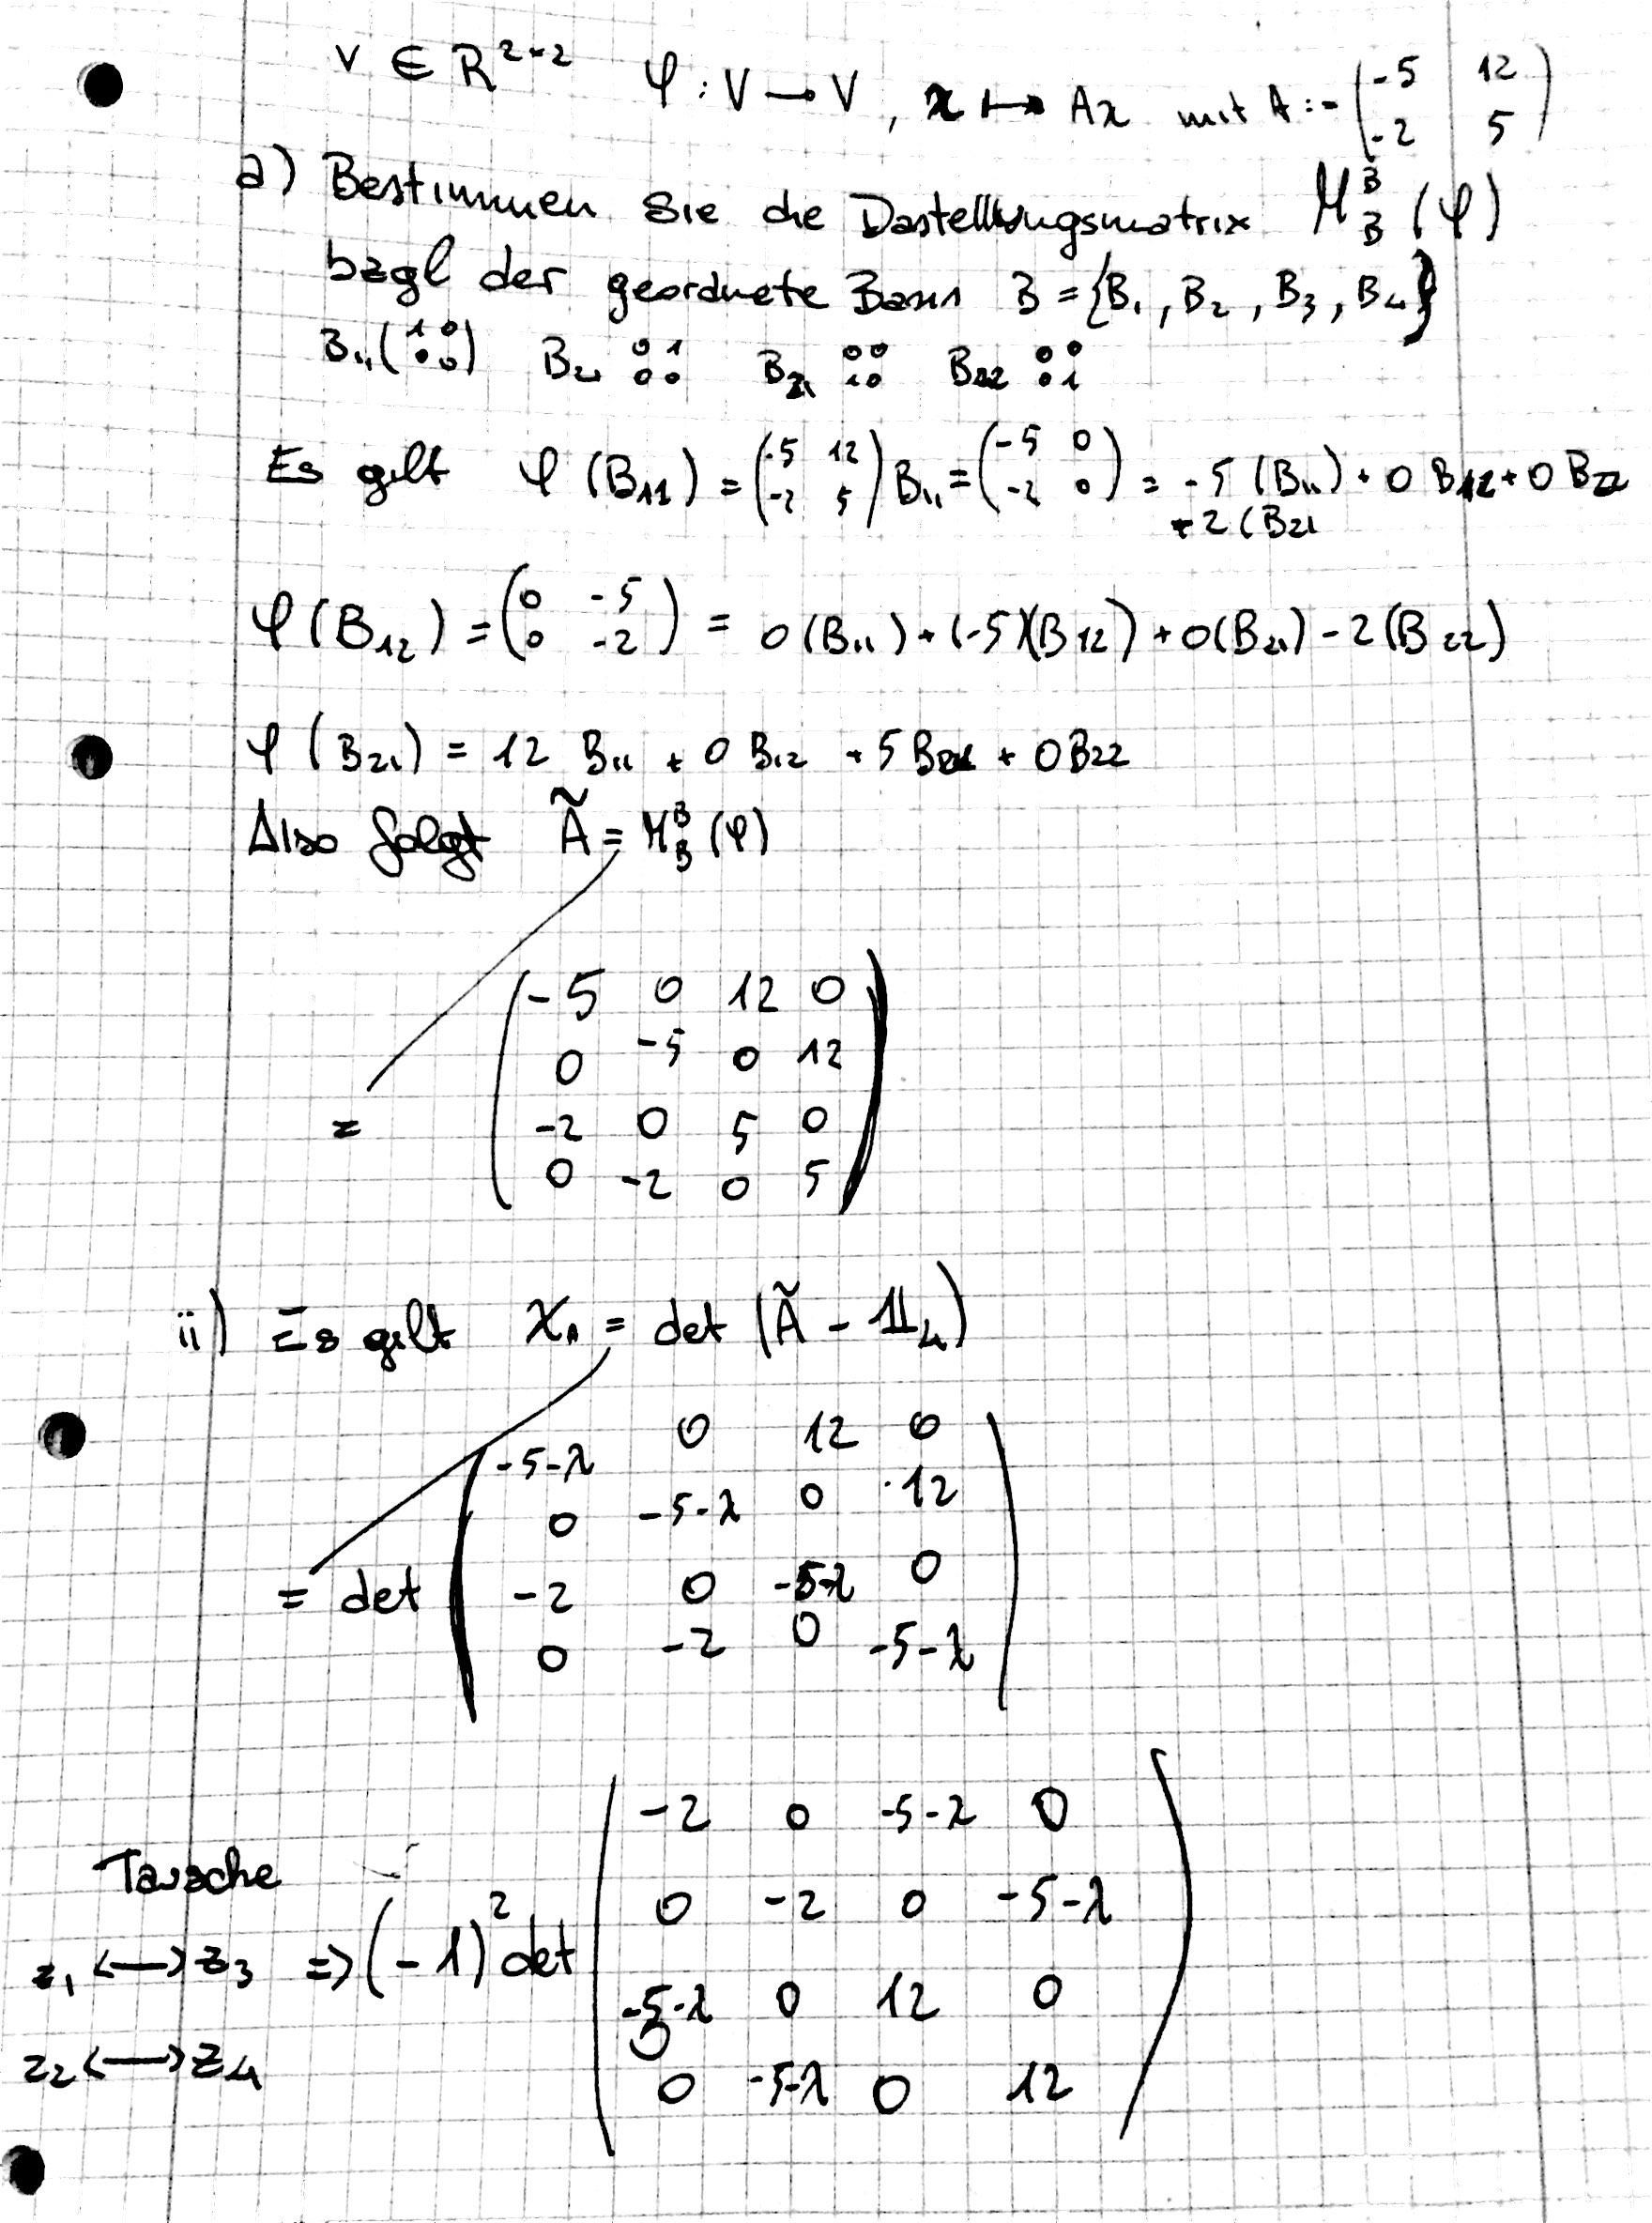 V ∈ R^{2×2} φ : V → V , x ↦ Ax mit A := (-5 12
-2 5)
a) Bestimmen Sie die Dastellungsmatrix M_B^B (φ)
bzgl der geordnete Basis B = {B_1, B_2, B_3, B_4}
B_11 (1 0
0 0) B_12 0 1
0 0 B_21 0 0
1 0 B_22 0 0
0 1
Es gilt φ (B_11) = (-5 12
-2 5) B_11 = (-5 0
-2 0) = -5 (B_11) + 0 B_12 + 0 B_22
-2 (B_21
φ (B_12) = (0 -5
0 -2) = 0 (B_11) + (-5)(B_12) + 0(B_21) - 2 (B_22)
φ (B_21) = 12 B_11 + 0 B_12 + 5 B_21 + 0 B_22
Also folgt Ã = M_B^B (φ)
= (-5 0 12 0
0 -5 0 12
-2 0 5 0
0 -2 0 5)
ii) Es gilt χ_A = det (Ã - 𝟙_4)
= det (-5-λ 0 12 0
0 -5-λ 0 12
-2 0 -5-λ 0
0 -2 0 -5-λ)
Tausche
z_1 ↔ z_3 ⇒ (-1)^2 det (-2 0 -5-λ 0
z_2 ↔ z_4
0 -2 0 -5-λ
-5-λ 0 12 0
0 -5-λ 0 12)